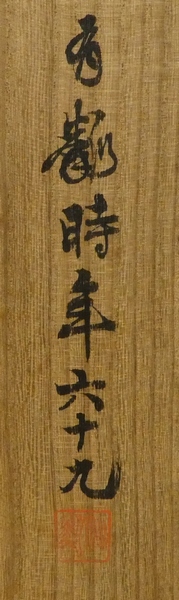 有鄰時年六十九